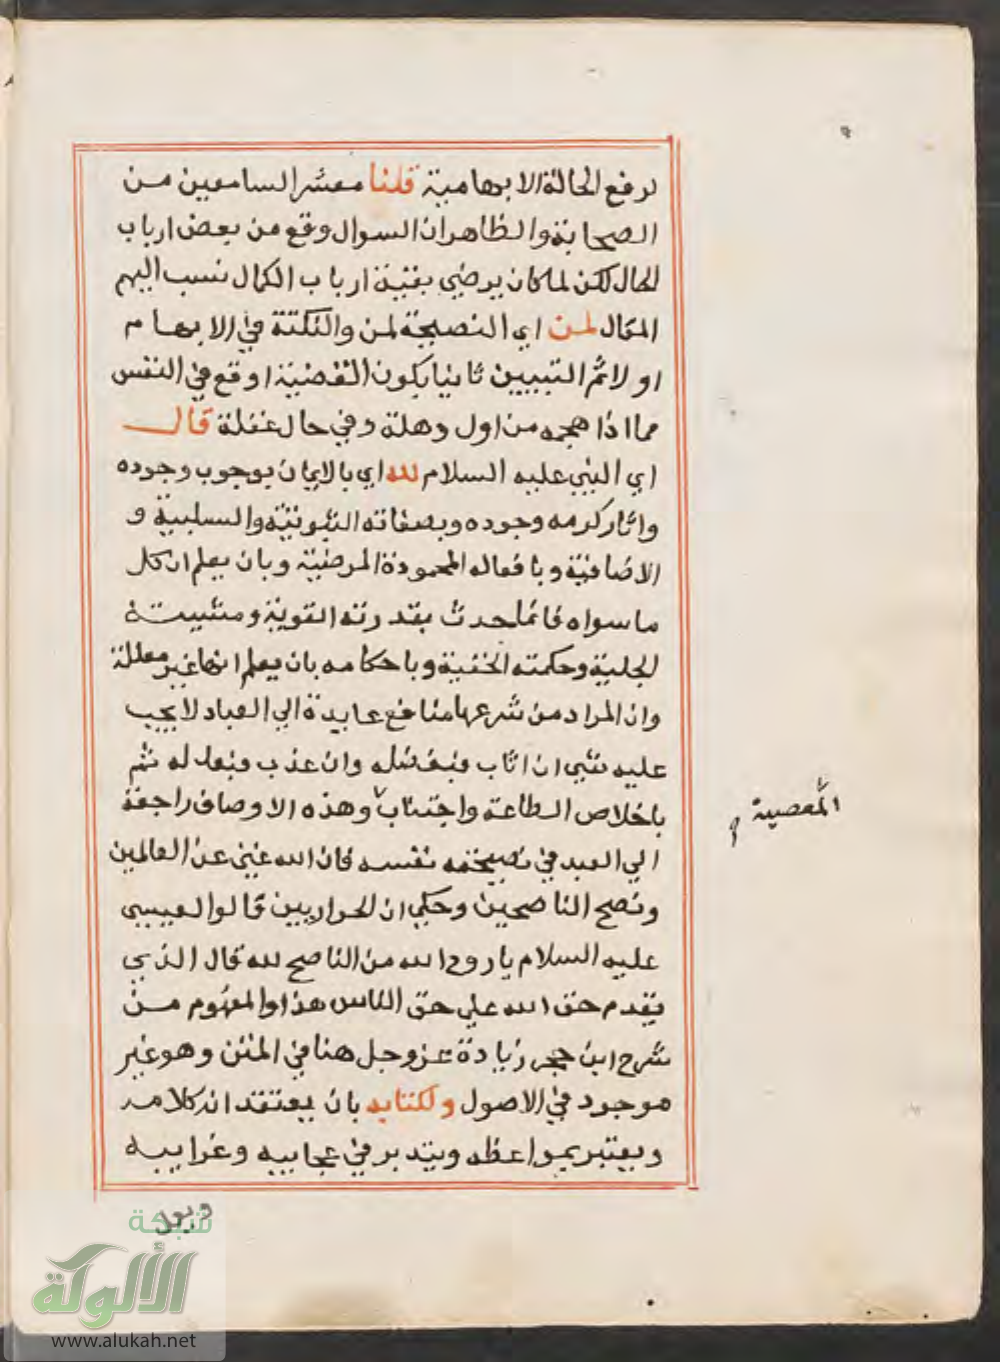 لرفع الحالة الابهامية قلنا معشر السامعين من
الصحابة والظاهر ان السوال وقع من بعض ارباب
الحال لكن لما كان يرضي بقية ارباب الكمال نسب اليهم
المقال لمن اي النصيحة لمن والنكتة في الابهام
اولا ثم التبيين ثانيا يكون القضية اوقع في النفس
مما اذا هجمه من اول وهلة وفي حال غفلة قال
اي النبي عليه السلام لله اي بالايمان بوجوب وجوده
واثار كرمه وجوده وبصفاته الثبوتية والسلبية و
الاضافية وبافعاله المحمودة المرضية وبان يعلم ان كل
ما سواه فانما حدث بقدرته القوية ومشيته
الجلية وحكمته الخفية وباحكامه بان يعلم انها غير معللة
وان المراد من شرعها منافع عايدة الي العباد لا يجب
عليه شي ان اثاب فبفضله وان عذب فبعدله ثم
باخلاص الطاعة واجتناب وهذه الاوصاف راجعة
المعصية
الي العبد في نصيحته نفسه فان الله غني عن العالمين
ونصح الناصحين وحكي ان الحواريين قالوا لعيسي
عليه السلام يا روح الله من الناصح لله قال الذي
يقدم حق الله علي حق الناس هذا والمفهوم من
شرح ابن حجر زيادة عز وجل هنا في المتن وهو غير
موجود في الاصول ولكتابه بان يعتقد انه كلامه
ويعتبر بمواعظه ويتدبر في عجايبه وغرايبه
شبكة
الألوكة
www.alukah.net